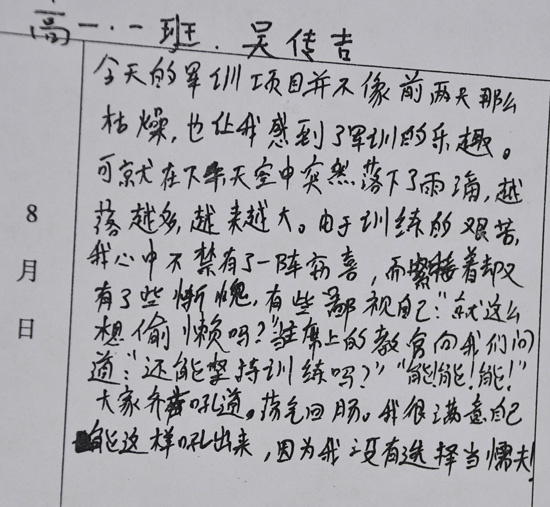 高一·一班.吴传吉
今天的军训项目并不像前两天那么
枯燥,也让我感到了军训的乐趣。
可就在下午天空中突然落下了雨滴,越
落越多,越来越大。由于训练的艰苦,
我心中不禁有了一阵窃喜,而紧接着却又
有了些惭愧,有些鄙视自己:“就这么
想偷懒吗?”雄鹰上的教官向我们问
道:“还能坚持训练吗?”“能!能!能!”
大家齐声吼道。荡气回肠。我很满意自己
能这样吼出来,因为我没有选择当懦夫!
8
月
日